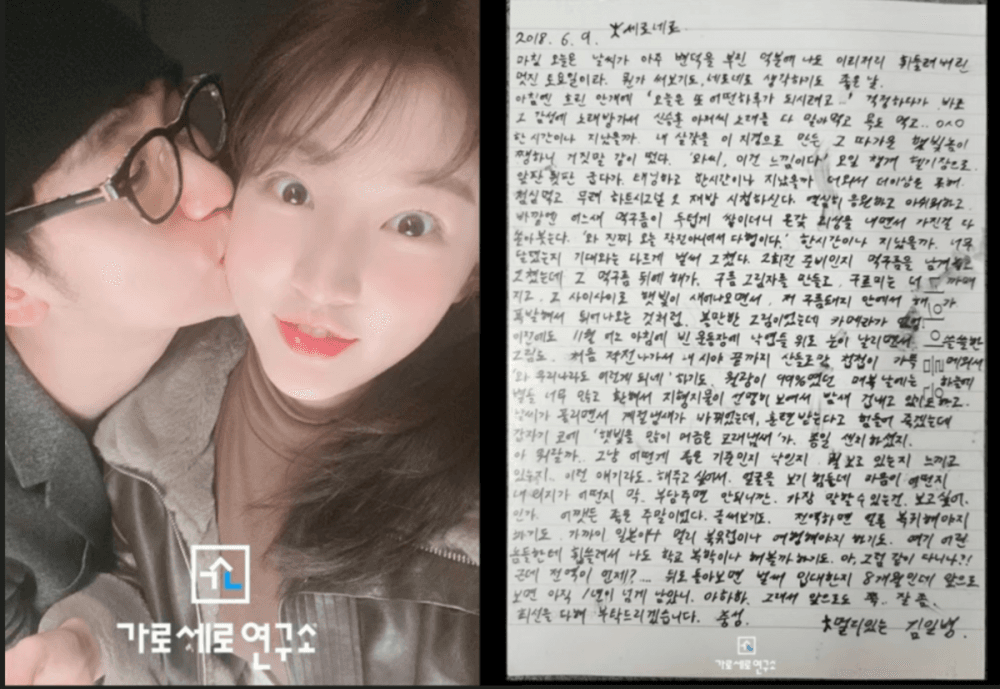 가로세로연구소
☆세로네로
2018. 6. 9.
마침 오늘은 날씨가 아주 변덕을 부린 덕분에 나도 이리저리 휘둘려버린
멋진 토요일이라. 뭔가 써보기도, 네로네로 생각하기도 좋은 날.
아침엔 흐린 안개에 '오늘은 또 어떤하루가 되시려고...' 걱정하다가 바로
그 감성에 노래방가서 신승훈 아저씨 노래를 다 말아먹고 목도 먹고.. ㅇㅅㅇ
한시간이나 지났을까. 내 살갗을 이 지경으로 만든 그 따가운 햇빛놈이
쨍하니 거짓말 같이 떴다. '와씨, 이건 느낌이다' 오일 챙겨 텔기장으로
앞판 뒷판 굽다가. 태닝하고 한시간이나 지났을까 더워서 더이상은 못해.
점심먹고 무려 하트시그널 2 재방 시청하신다. 열심히 응원하고 아쉬워하고.
바깥엔 어느새 먹구름이 두텁게 쌓이더니 온갖 괴성을 내면서 가진걸 다
쏟아붓는다. '와 진짜 오늘 작전아니어서 다행이다.' 한시간이나 지났을까. 너무
달렸는지 기대와는 다르게 벌써 그쳤다. 2회전 준비인지 먹구름을 남겨놓고
그쳤는데 그 먹구름 뒤에 해가. 구름 그림자를 만들고, 구르미는 더 까매
지고. 그 사이사이로 햇빛이 새어나오면서, 저 구름돼지 안에서 해가
폭발해서 튀어나오는 것처럼. 볼만한 그림이었는데 카메라가 없엉
이번에도 11월 여고 아침에 빈 운동장에 낙엽들 위로 눈이 날리면서 쓸쓸한
그림도. 처음 작전나가서 내 시야 끝까지 산들로만 첩첩이 가득 메워져서
'와 우리나라도 이런게 되네' 하기도. 월광이 99%였던 매복날에는 하늘에
별들 너무 많고 환해서 지형지물이 선명히 보여서 밤새 겁내고 있기도하고.
날씨가 풀리면서 계절냄새가 바뀌었는데, 훈련받는다고 힘들어 죽겠는데
갑자기 코에 '햇빛을 많이 머금은 모래냄새'가. 종일 센치하셨지.
아 뭐랄까.. 그냥 어떤게 좋은 기준인지 낙인지 뭘 보고 있는지 느끼고
있는지. 이런 얘기라도. 해주고싶어서. 얼굴을 보기 힘든데 마음이 어떤지
내 의지가 어떤지 막. 부담주면 안되니깐. 가장 말할 수 있는건. 보고싶어.
인가. 어쨌든 좋은 주말이었다. 글써보기도. 전역하면 얼른 복귀해야지
하기도. 가까이 일본이나 멀리 북유럽이나 여행해야지 하기도. 여기 어린
놈들한테 휩쓸려서 나도 학교 복학이나 해볼까하기도. 아, 그럼 같이 다니나?!
근데 전역이 언제?.... 뒤로 돌아보면 벌써 입대한지 8개월인데 앞으로
보면 아직 1년이 넘게 남았니. 아하하. 그래서 앞으로도 쭉. 잘 좀.
최선을 다해 부탁드리겠습니다. 충성
☆멀리있는 김일병.
가로세로연구소